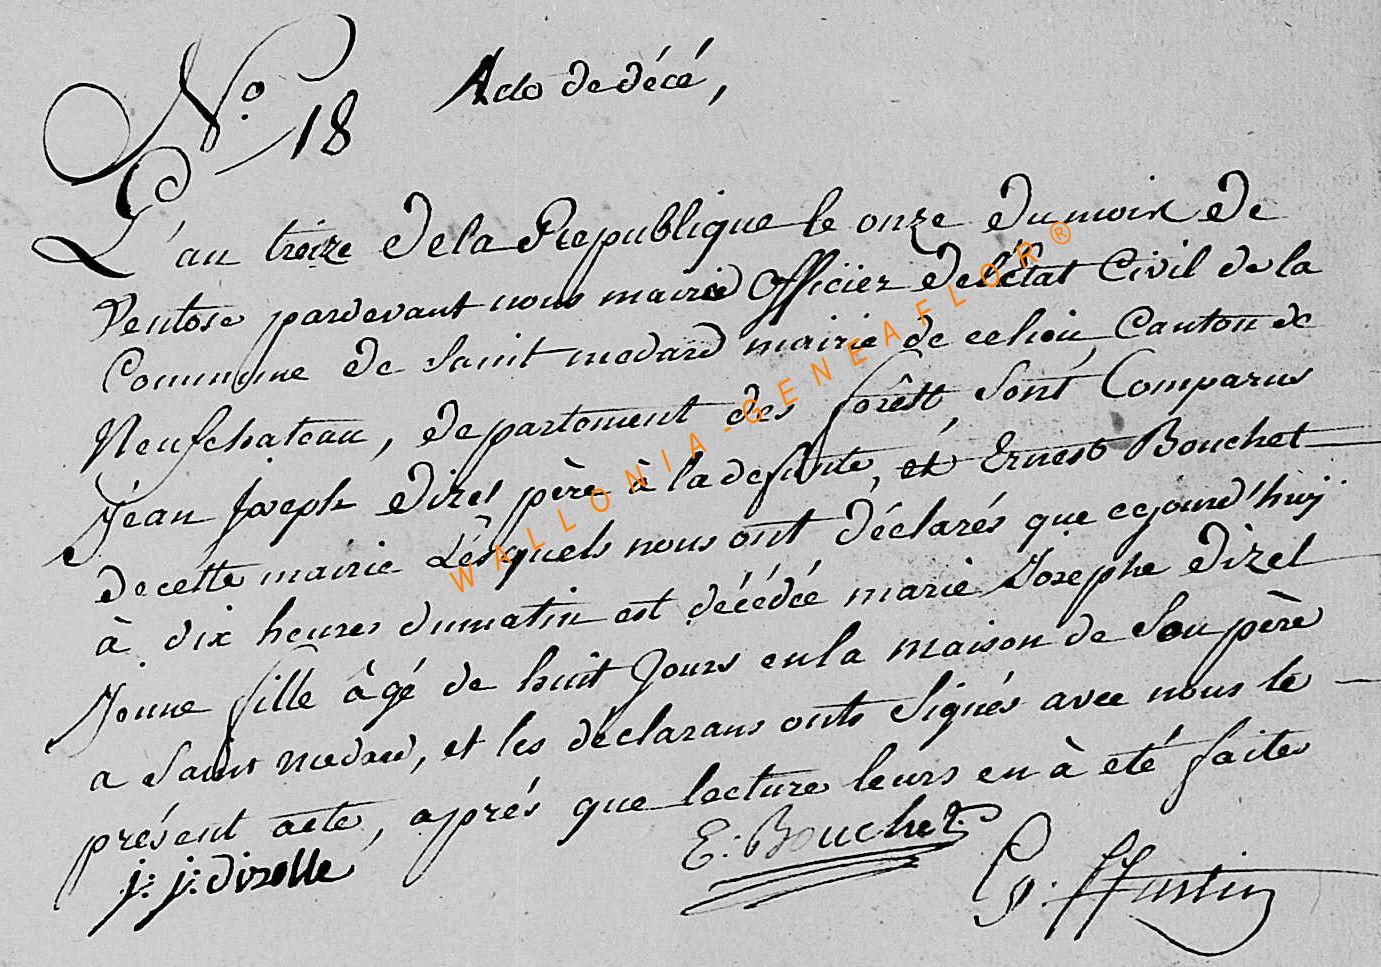 N.o 18
Acte de décé,
L'an treize de la République le onze du mois de
Ventose pardevant nous maire officier de l'état Civil de la
Commune de Saint medard mairie de ce lieu, Canton de
Neufchateau, departement des forêtt, sont Comparus
Jean Joseph dizel père à la defunte, et Ernest Bouchet
de cette mairie Lésquels nous ont déclarés que cejourd'huÿ
à dix heures dumatin est décédée marie Josephe dizel
Jeune fille âgé de huit Jours en la maison de Son père
a Saint medard, et les déclarans onts signés avec nous le
présent acte, après que lecture leurs en à été faite
E: Bouchet
j: j: dizelle
WALLONIA-GENEAFLOR®